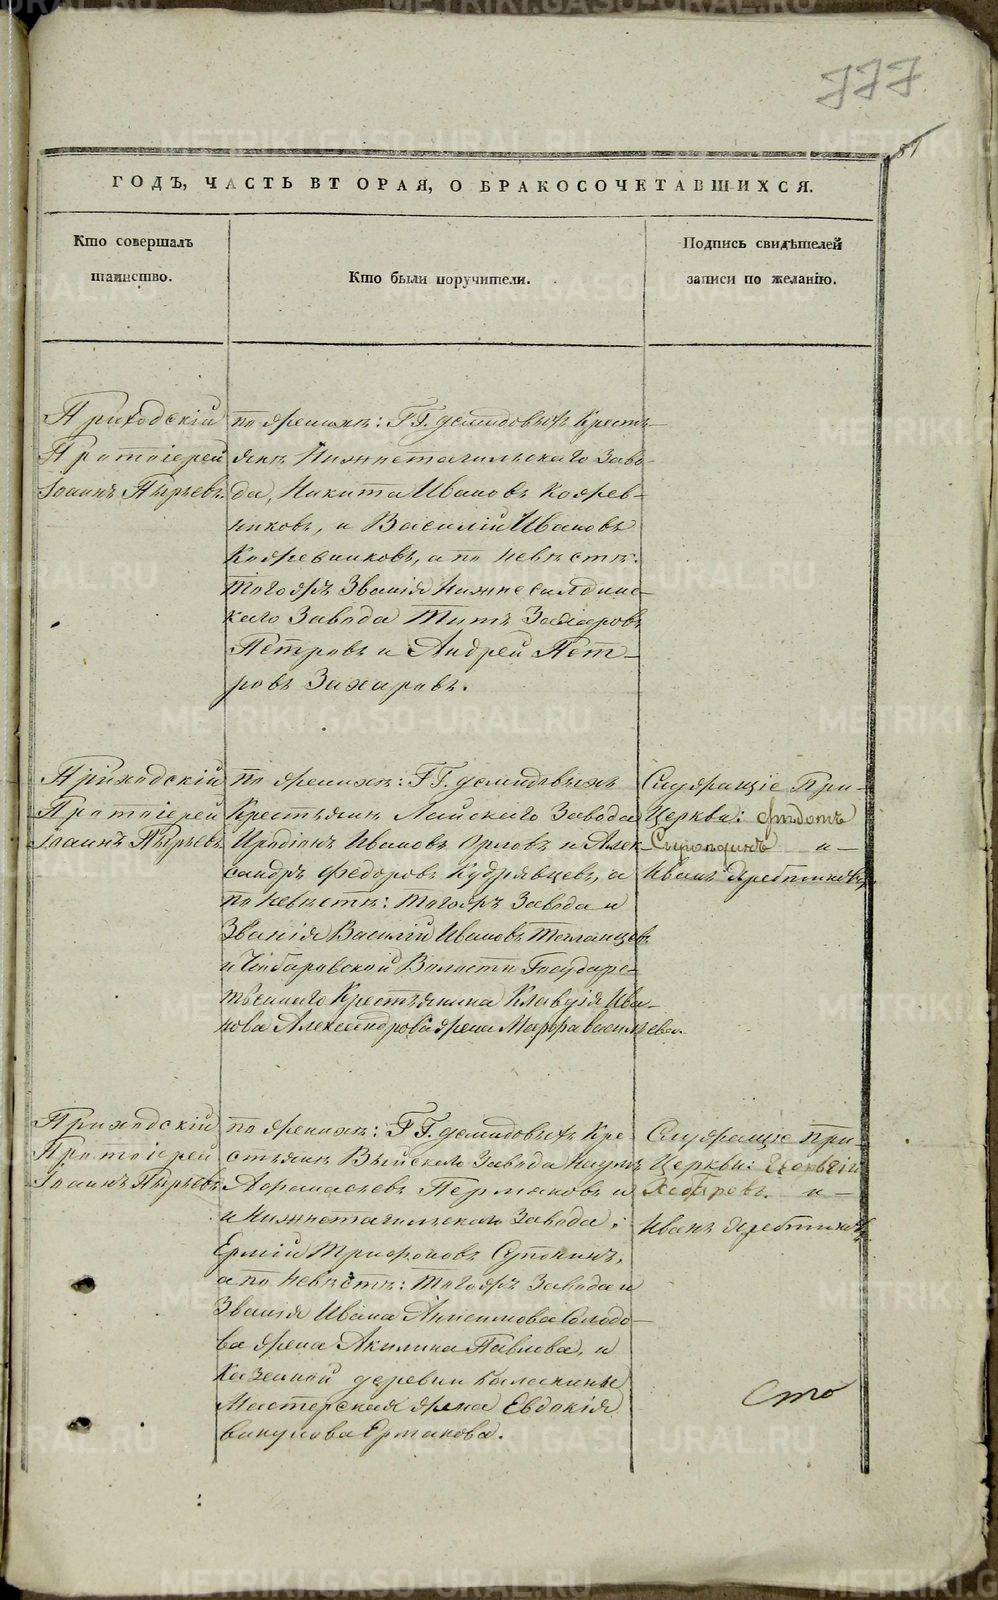 777
81
ГОДЪ, ЧАСТЬ ВТОРАЯ, О БРАКОСОЧЕТАВШИХСЯ.
Кто совершалъ
таинство.
Кто были поручители.
Подпись свидѣтелей
записи по желанію.
Приходскій
Протоіерей
Іоаннъ Пырьевъ
по женихѣ: ГГ. Демидовыхъ Кресть-
янъ Нижнетагильскаго Заво-
да, Никита Ивановъ Кожев-
никовъ, и Василій Ивановъ
Кожевниковъ, а по невѣстѣ:
тогожъ Званія Нижнесалдинс-
каго Завода Титъ Захаровъ
Петровъ и Андрей Пет-
ровъ Захаровъ.
Приходскій
Протоіерей
Іоаннъ Пырьевъ
по женихѣ: ГГ. Демидовыхъ
Крестьянъ Лайскаго Завода
Иродіонъ Ивановъ Орловъ и Алек-
сандръ Федоровъ Кудрявцевъ, а
по невѣстѣ: тогожъ Завода и
Званія Василій Ивановъ
и Волости Государс-
твеннаго Крестьянина Клавдія Ива-
нова Александрова жена Марфа Васильева.
Служащіе При
Церкви: Федотъ
и
Иванъ
Приходскій
Протоіерей
Іоаннъ Пырьевъ
по женихѣ: ГГ. Демидовыхъ Кре-
стьянъ Выйскаго Завода Наумъ
Афанасьевъ Пермяковъ и
и Нижнетагильскаго Завода:
Ермій Трифоновъ
а по невѣстѣ: тогожъ Завода и
Званія Ивана Анисимова Солодо-
ва жена Акилина Павлова, и
Казенной деревни
Мастерская жена Евдокія
Вакулова Ермакова.
Служащіе При
Церкви: Георгій
Хебаровъ и
Иванъ
Сто
METRIKI.GASO-URAL.RU